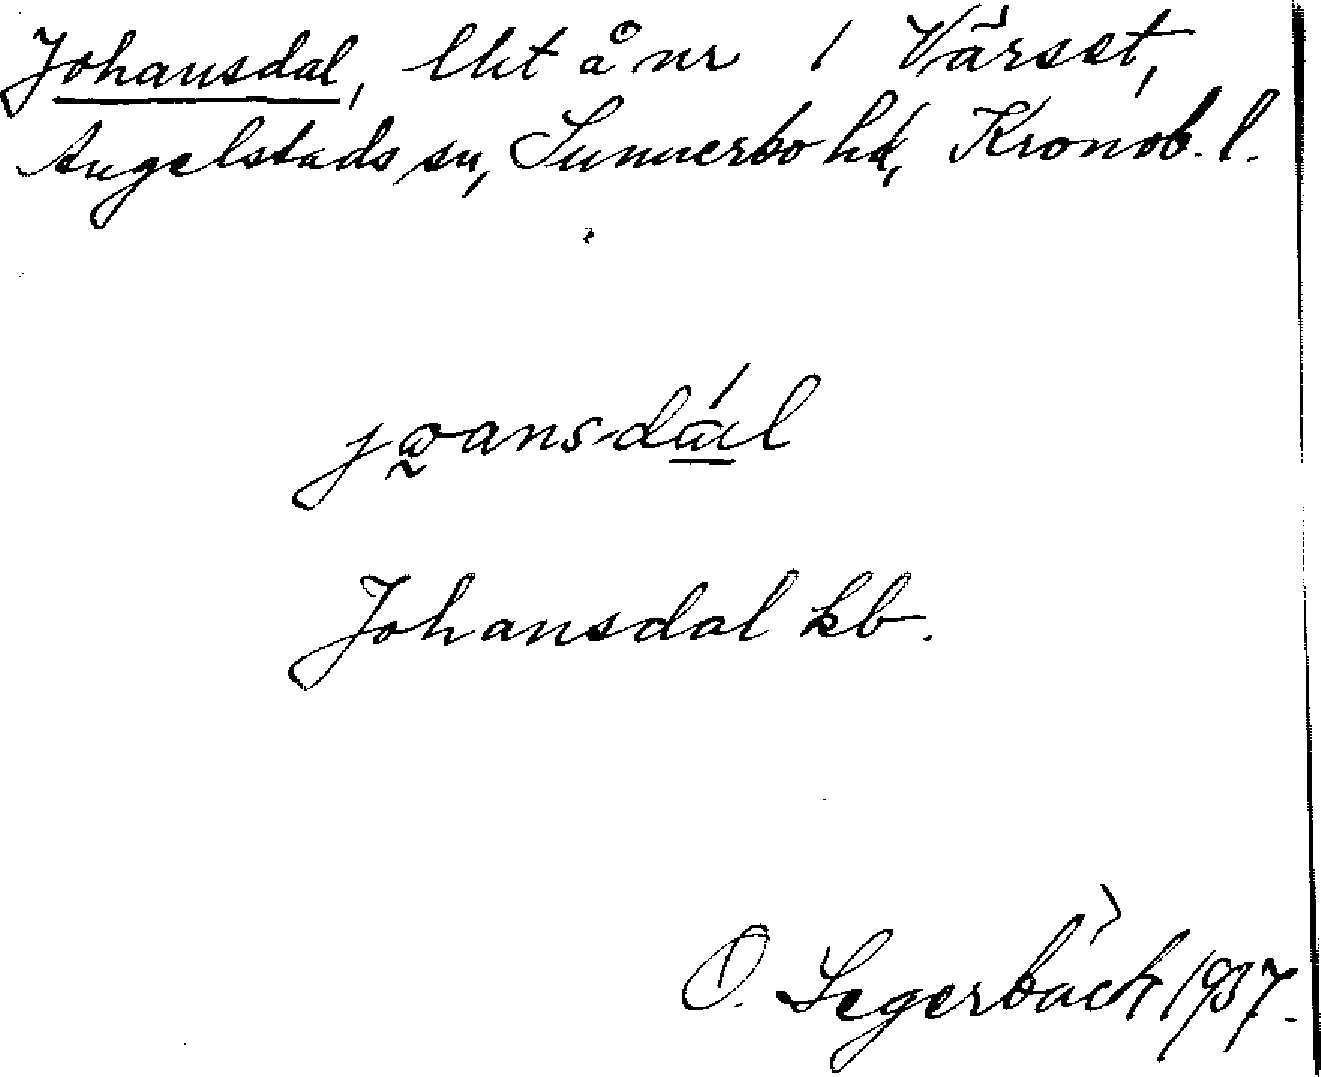 Johansdal, lht å nr 1 Värset,
Angelstads sn, Sunnerbo hd, Kronob. l.
jωansdál
Johansdal kb.
O. Segerbäck 1937.